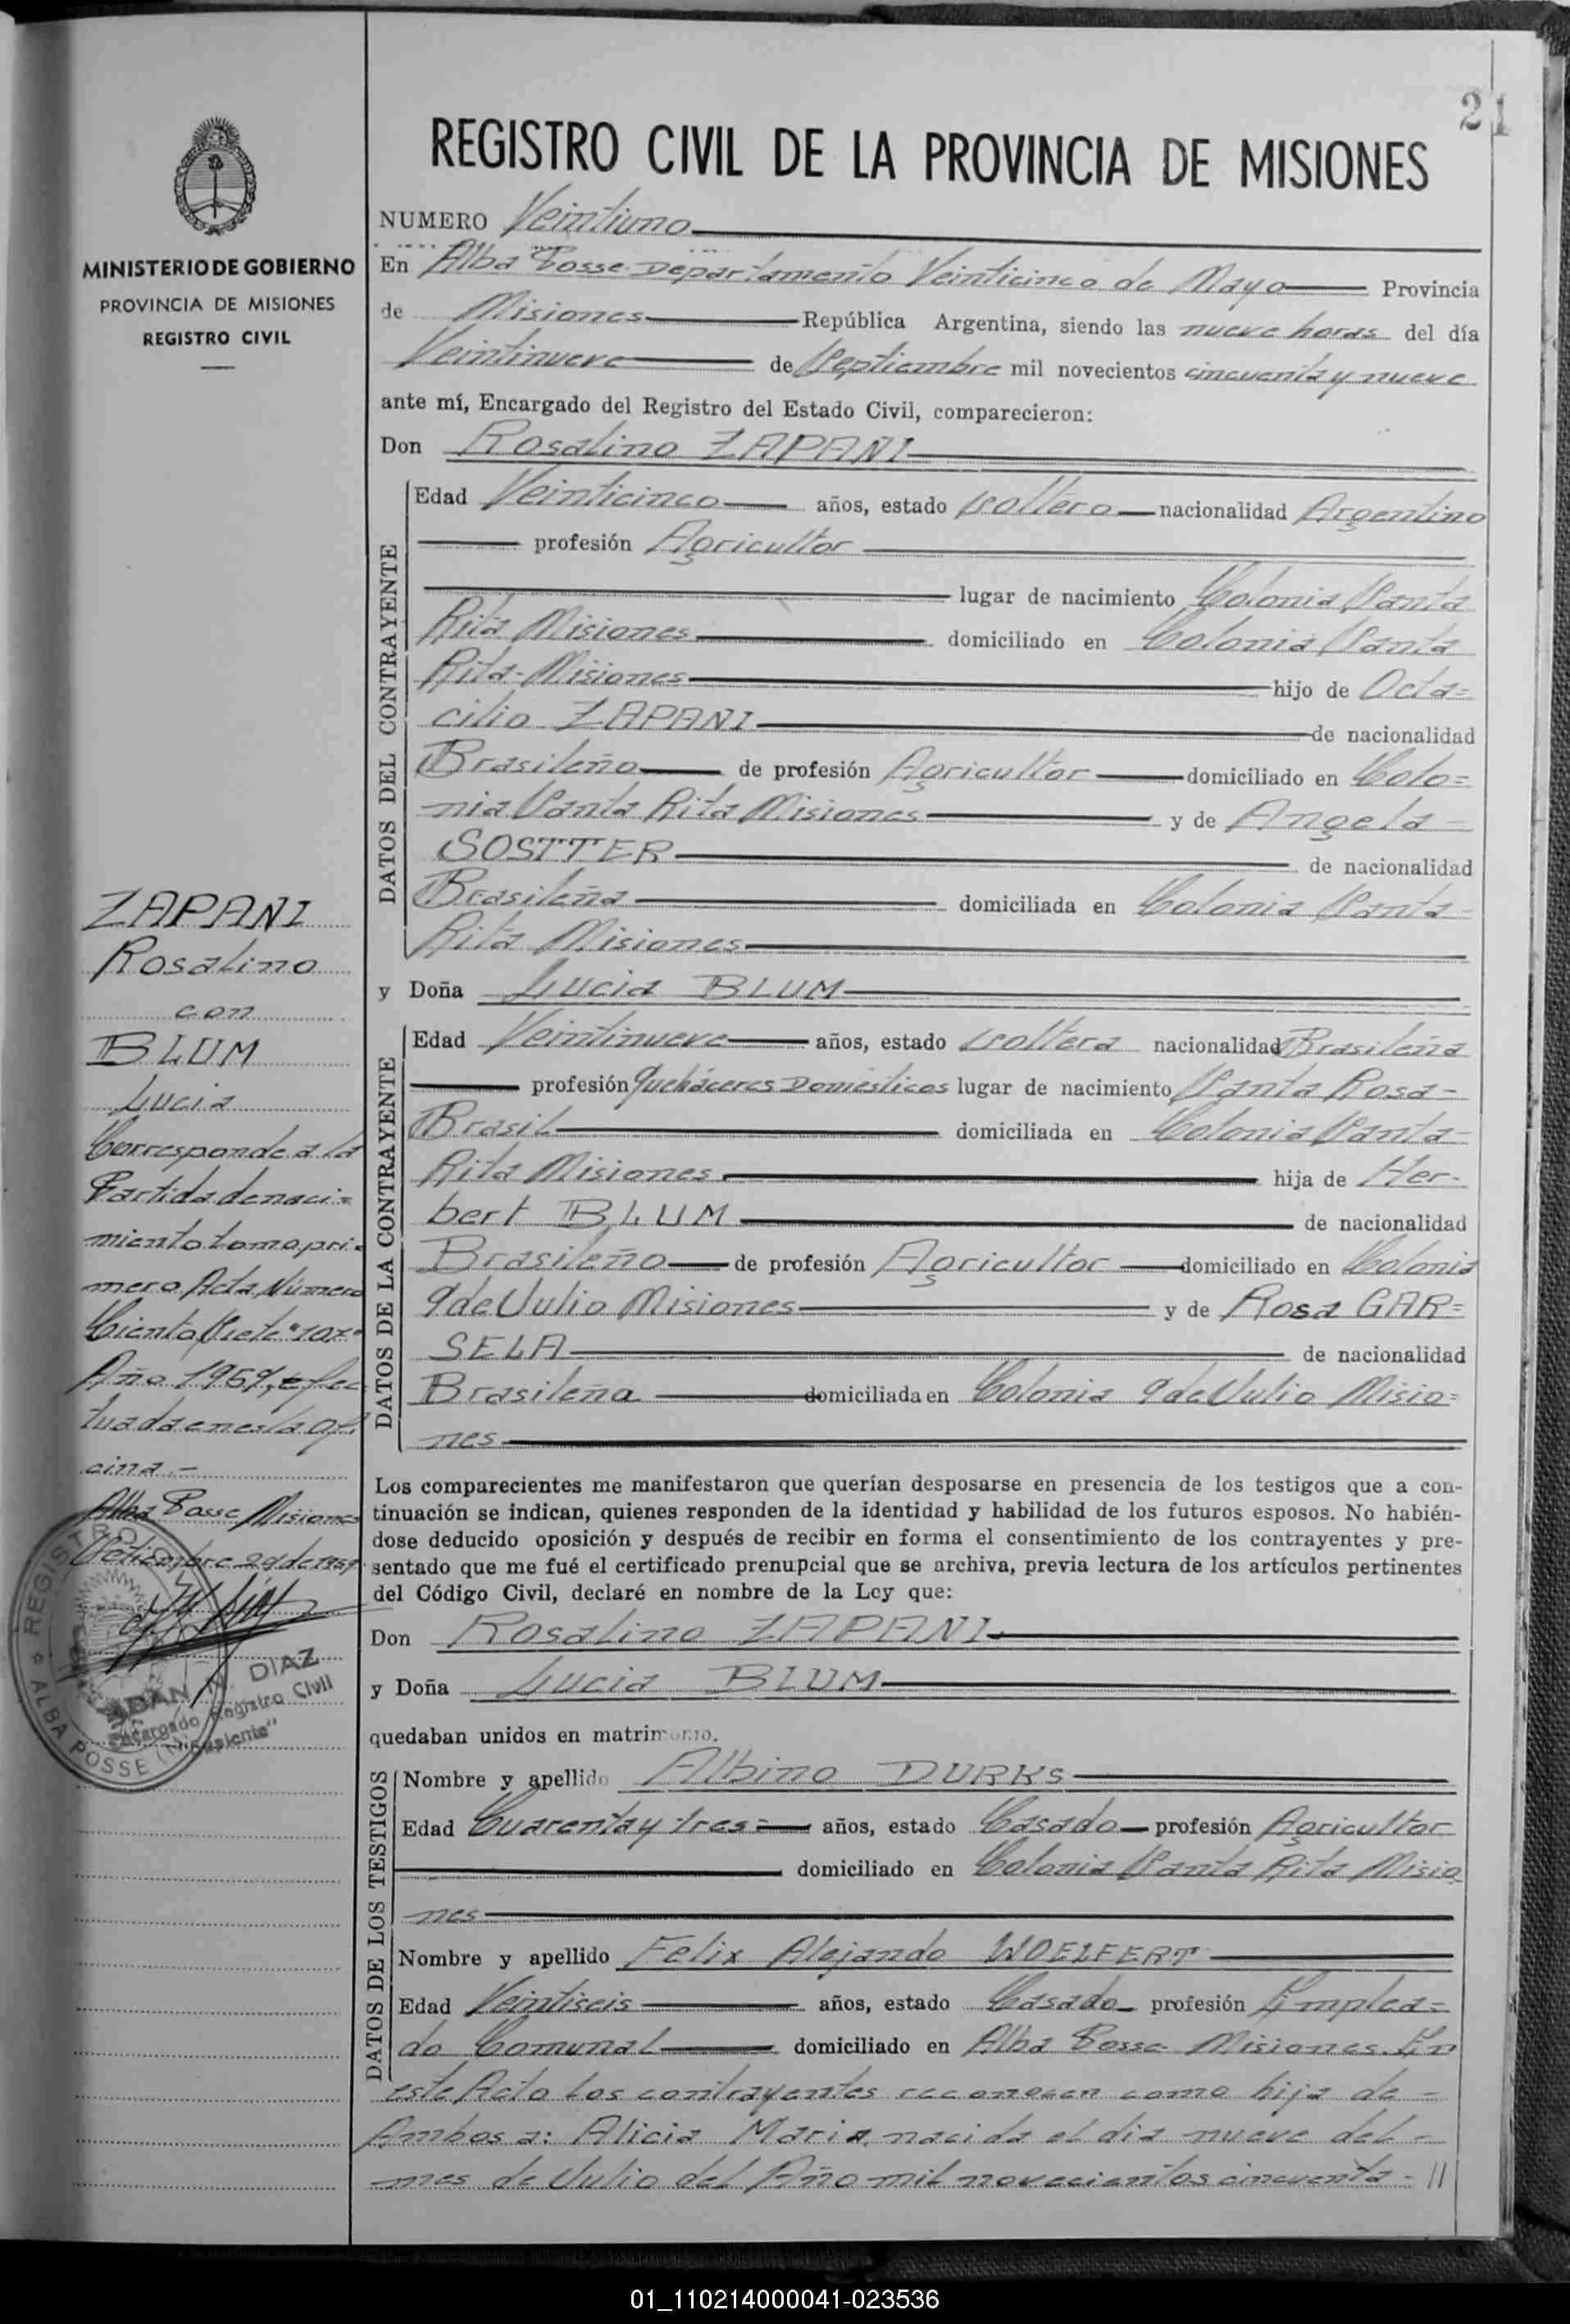 21
REGISTRO CIVIL DE LA PROVINCIA DE MISIONES
MINISTERIO DE GOBIERNO
PROVINCIA DE MISIONES
REGISTRO CIVIL
NUMERO Veintiuno
En Alba Posse Departamento Veinticinco de Mayo Provincia
de Misiones República Argentina, siendo las nueve horas del día
Veintinueve de Septiembre mil novecientos cincuenta y nueve
ante mí, Encargado del Registro del Estado Civil, comparecieron:
Don Rosalino ZAPANI
DATOS DEL CONTRAYENTE
Edad Veinticinco años, estado soltero nacionalidad Argentino
profesión Agricultor
lugar de nacimiento Colonia Santa
Rita Misiones domiciliado en Colonia Santa
Rita-Misiones hijo de Octa=
cilio ZAPANI de nacionalidad
Brasileño de profesión Agricultor domiciliado en Colo=
nia Santa Rita Misiones y de Angela -
SOSTTER de nacionalidad
Brasileña domiciliada en Colonia Santa -
Rita Misiones
y Doña Lucia BLUM
DATOS DE LA CONTRAYENTE
Edad Veintinueve años, estado soltera nacionalidad Brasileña
profesión Queháceres Domésticos lugar de nacimiento Santa Rosa -
Brasil domiciliada en Colonia Santa -
Rita Misiones hija de Her-
bert BLUM de nacionalidad
Brasileño de profesión Agricultor domiciliado en Colonia
9 de Julio Misiones y de Rosa GAR=
SELA de nacionalidad
Brasileña domiciliada en Colonia 9 de Julio Misio=
nes
Los comparecientes me manifestaron que querían desposarse en presencia de los testigos que a con-
tinuación se indican, quienes responden de la identidad y habilidad de los futuros esposos. No habién-
dose deducido oposición y después de recibir en forma el consentimiento de los contrayentes y pre-
sentado que me fué el certificado prenupcial que se archiva, previa lectura de los artículos pertinentes
del Código Civil, declaré en nombre de la Ley que:
Don Rosalino ZAPANI
y Doña Lucia BLUM
quedaban unidos en matrimonio.
DATOS DE LOS TESTIGOS
Nombre y apellido Albino DURKS
Edad Cuarenta y tres= años, estado Casado profesión Agricultor
domiciliado en Colonia Santa Rita Misio
nes
Nombre y apellido Felix Alejando WOELFERT
Edad Veintiseis años, estado Casado profesión Emplea=
do Comunal domiciliado en Alba Posse Misiones. En
este Acto los contrayentes reconocen como hija de -
Ambos a: Alicia Maria, nacida el dia nueve del -
mes de Julio del Año mil novecientos cincuenta - //
ZAPANI
Rosalino
con
BLUM
Lucia
Corresponde a la
Partida de naci=
miento tomo pri=
mero Acta Número
Ciento Siete "107"
Año 1959, efec
tuada en esta ofi
cina.-
Alba Posse Misiones
Setiembre 29 de 1959
REGISTRO
ALBA POSSE
ADAN N. DIAZ
Encargado Registro Civil
"Suplente"
01_110214000041-023536